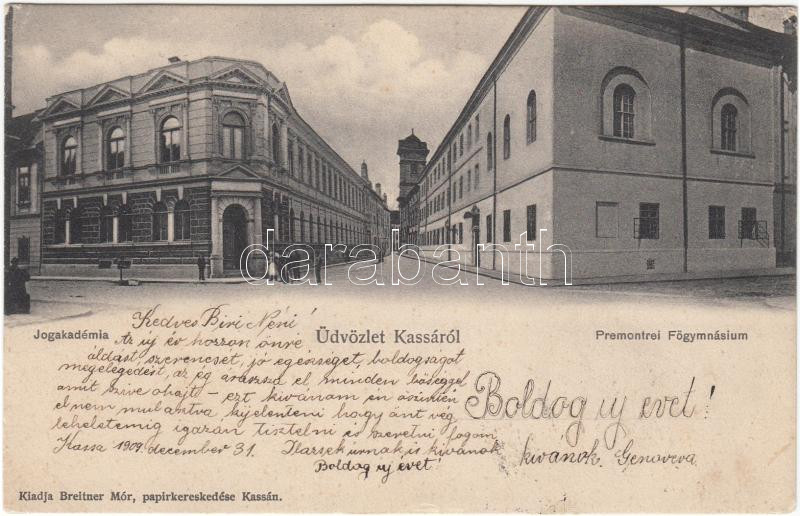 darabanth
Jogakadémia
Üdvözlet Kassáról
Premontrei Fögymnásium
Kedves Biri Néni!
Az új év hozzon önre
áldást szerencsét, jó egészséget, boldogságot
megelégedést, az ég árassza el minden bőséggel
amit szive ohajt – ezt kivánom én őszintén
el nem mulasztva kijelenteni hogy önt vég
leheletemig igazán tisztelni és szeretni fogom
Kassa 1909 december 31. urnak is kivánok
Boldog uj évet!
Boldog uj évet!
kivánok. Genoveva
Kiadja Breitner Mór, papirkereskedése Kassán.